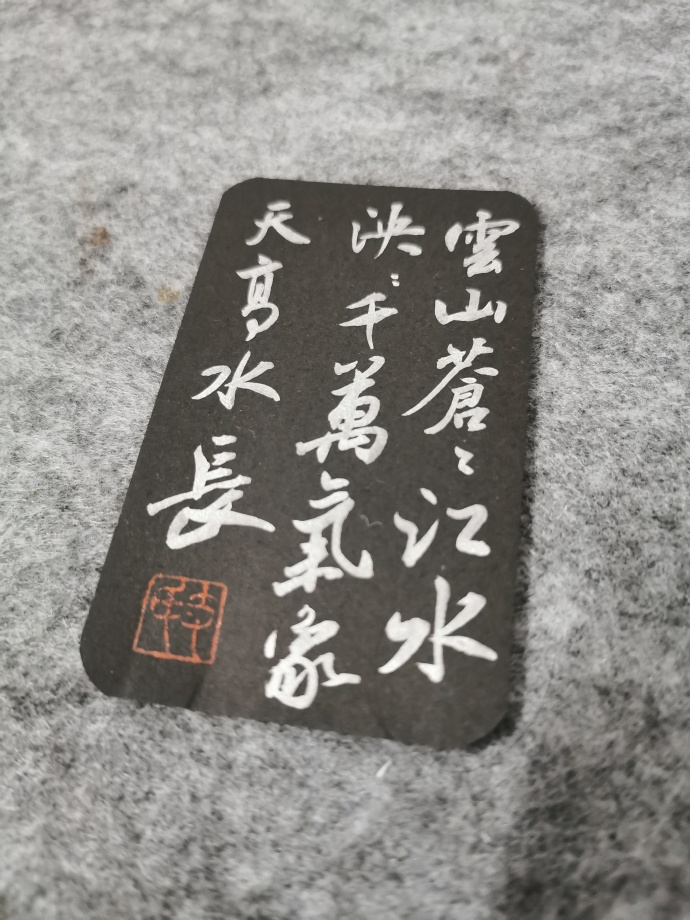 雲山蒼〻江水
泱〻千萬氣象
天高水長